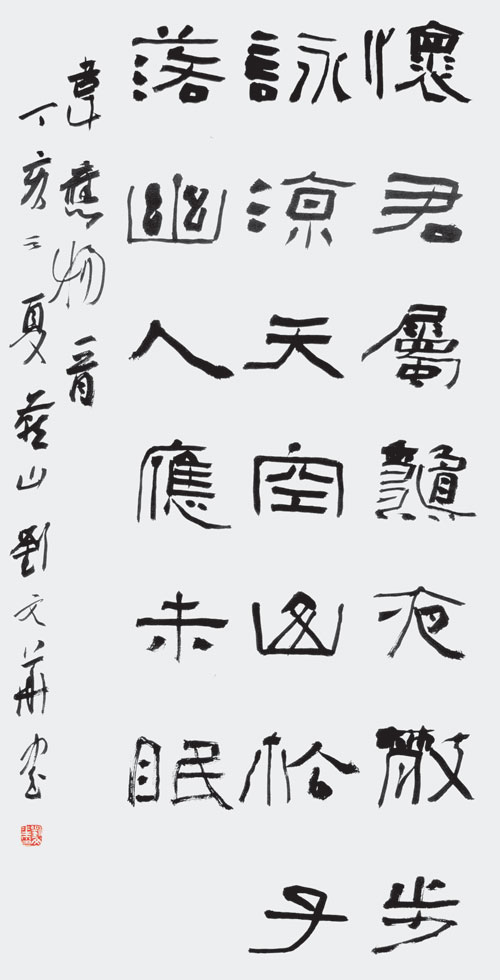 懷君屬龝夜散步
詠涼天空山松子
落幽人應未眠
韋應物
丁亥之夏燕山劉文華書